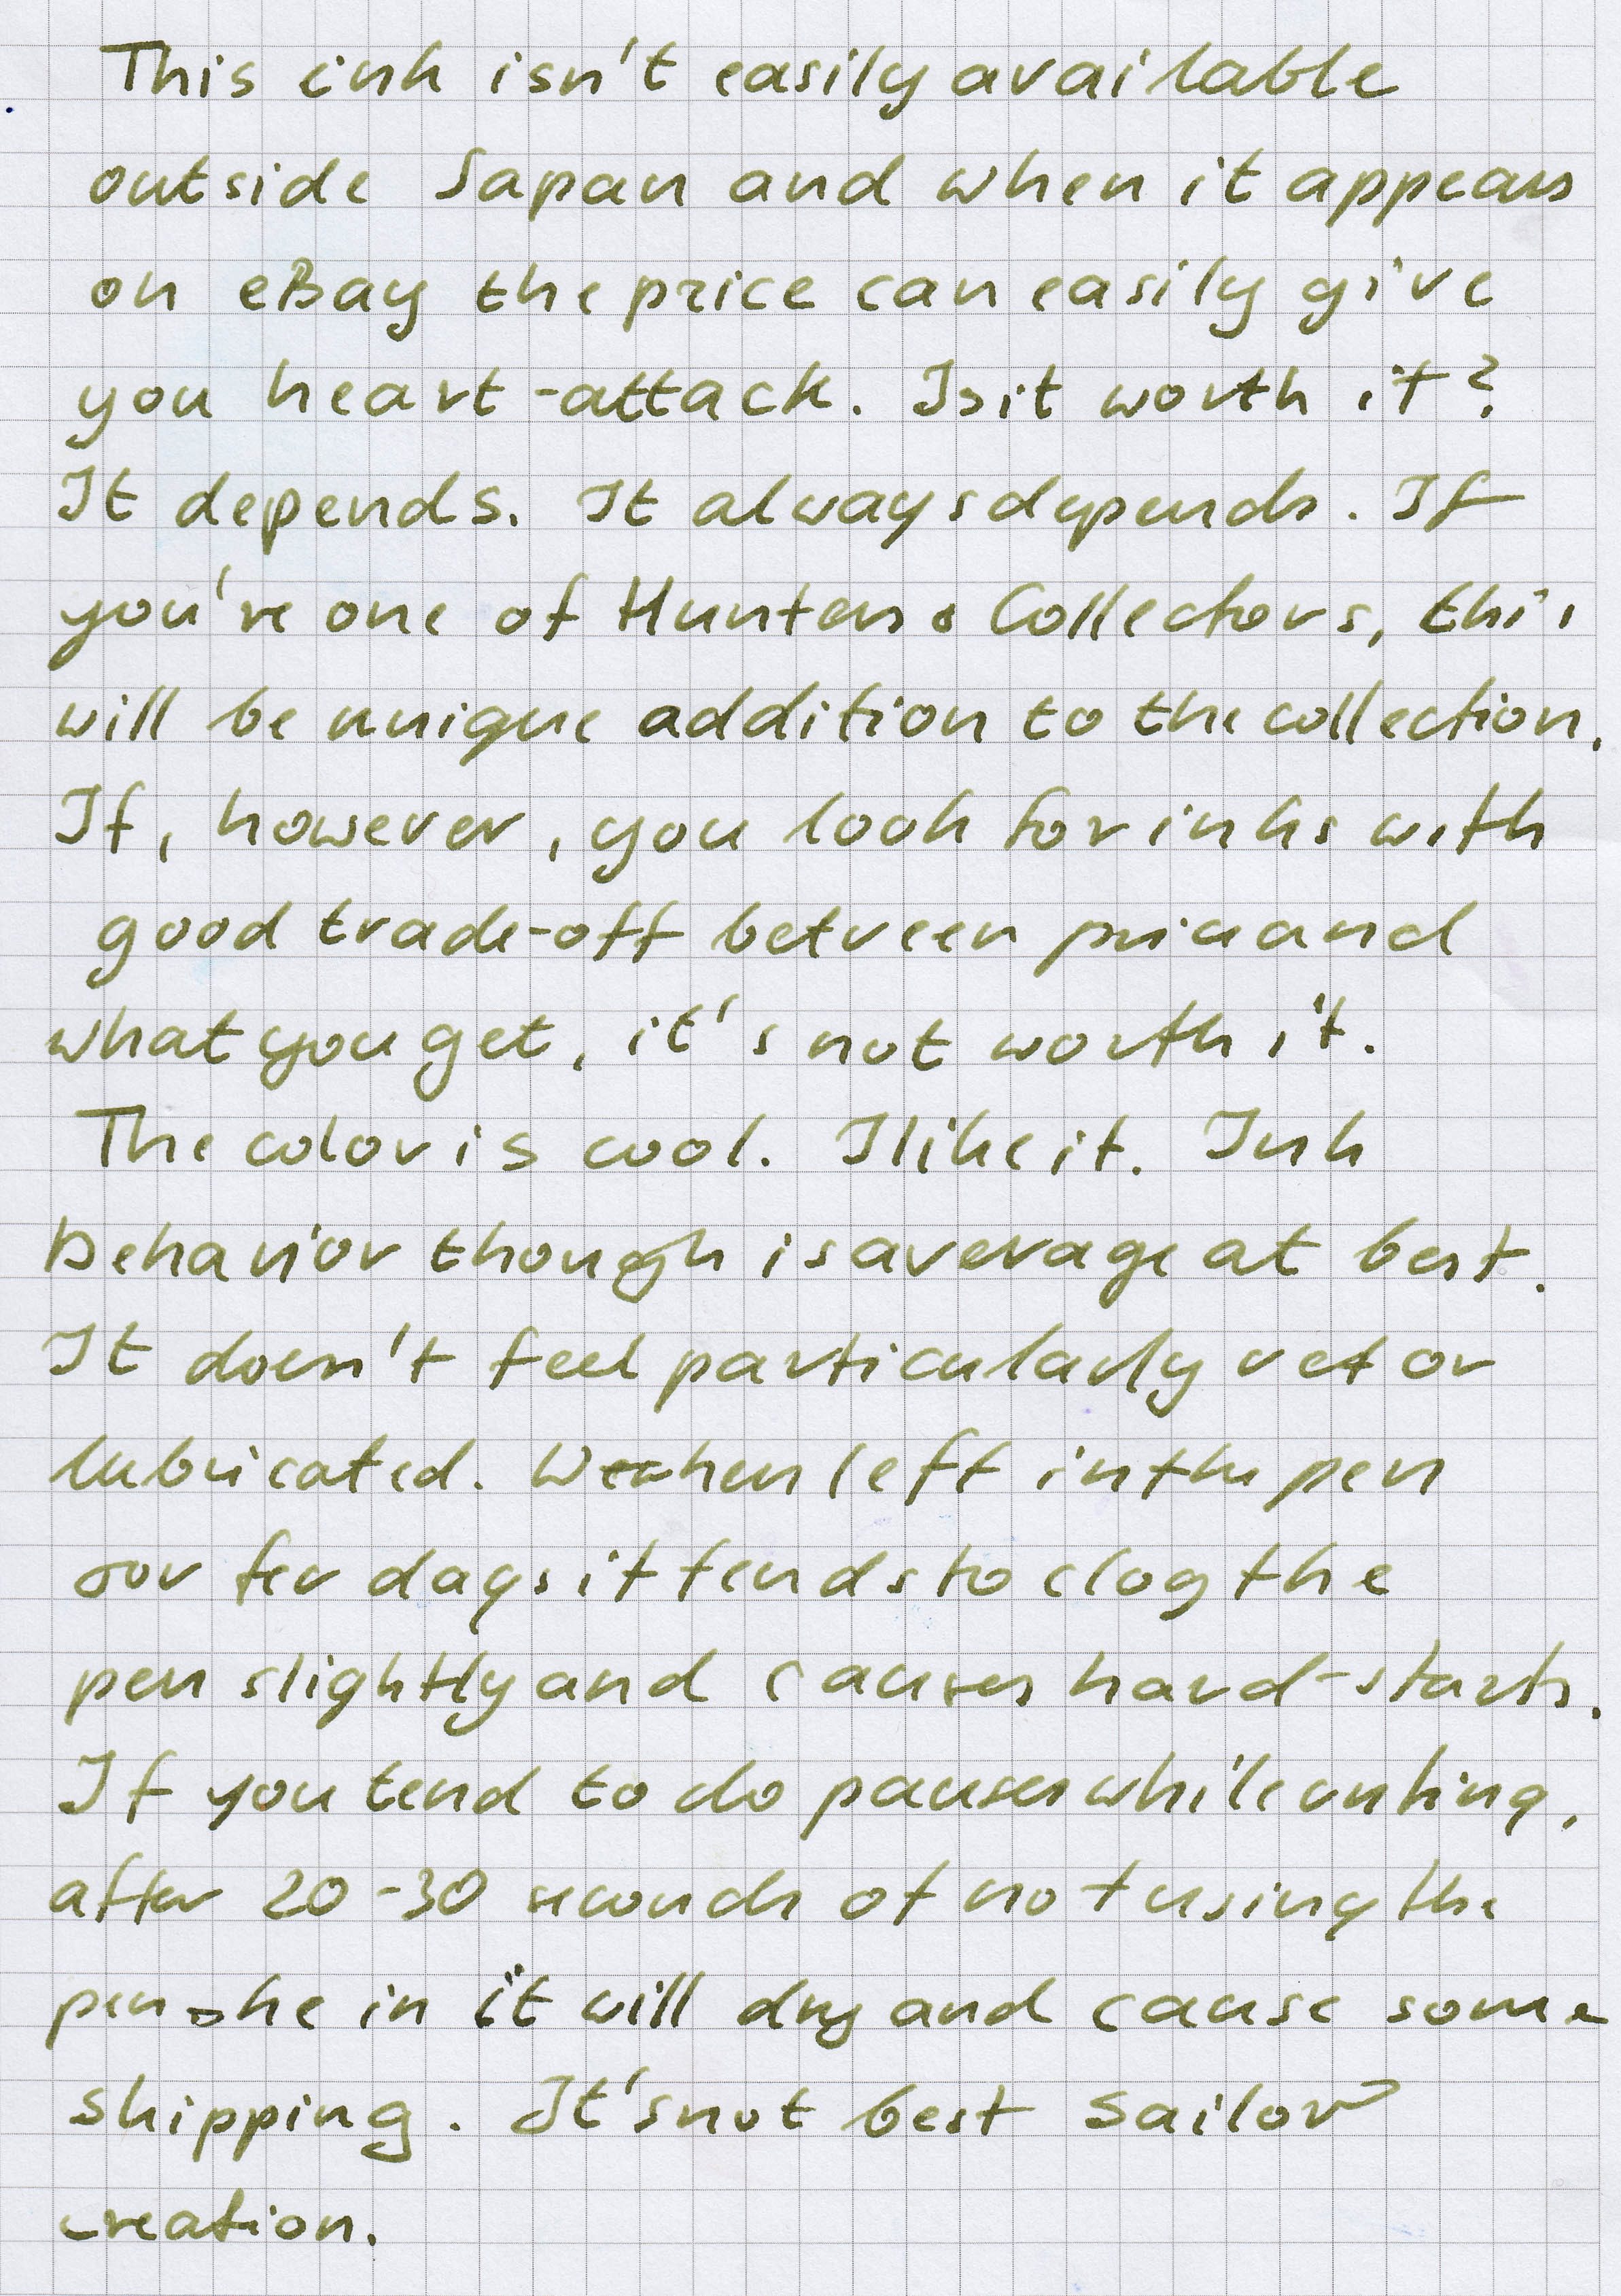 This ink isn't easily available
outside Japan and when it appears
on eBay the price can easily give
you heart-attack. Is it worth it?
It depends. It always depends. If
you're one of Hunters & Collectors, this
will be unique addition to the collection.
If, however, you look for inks with
good trade-off between price and
what you get, it's not worth it.
The color is cool. I like it. Ink
behavior though is average at best.
It doesn't feel particularly wet or
lubricated. When left in the pen
for few days it tends to clog the
pen slightly and causes hard-starts.
If you tend to do pauses while writing,
after 20-30 seconds of not using the
pen the in it will dry and cause some
skipping. It's not best Sailor
creation.